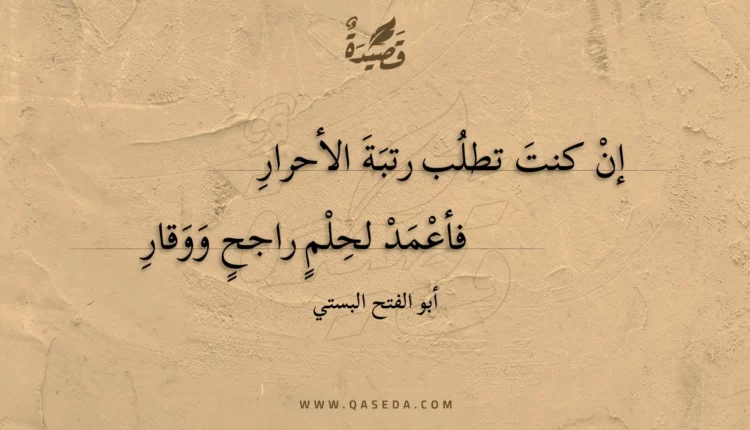 قَصِيدَةٌ
إنْ كنتَ تطلُب رتبَةَ الأحرارِ
فأعْمَدْ لحِلْمٍ راجحٍ وَوَقارِ
أبو الفتح البستي
WWW.QASEDA.COM